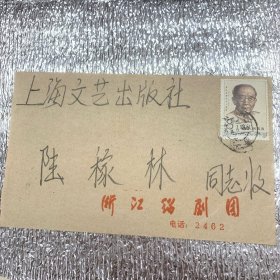 上海文艺出版社
陆稼林 同志收
浙江绍剧团
电话：2462